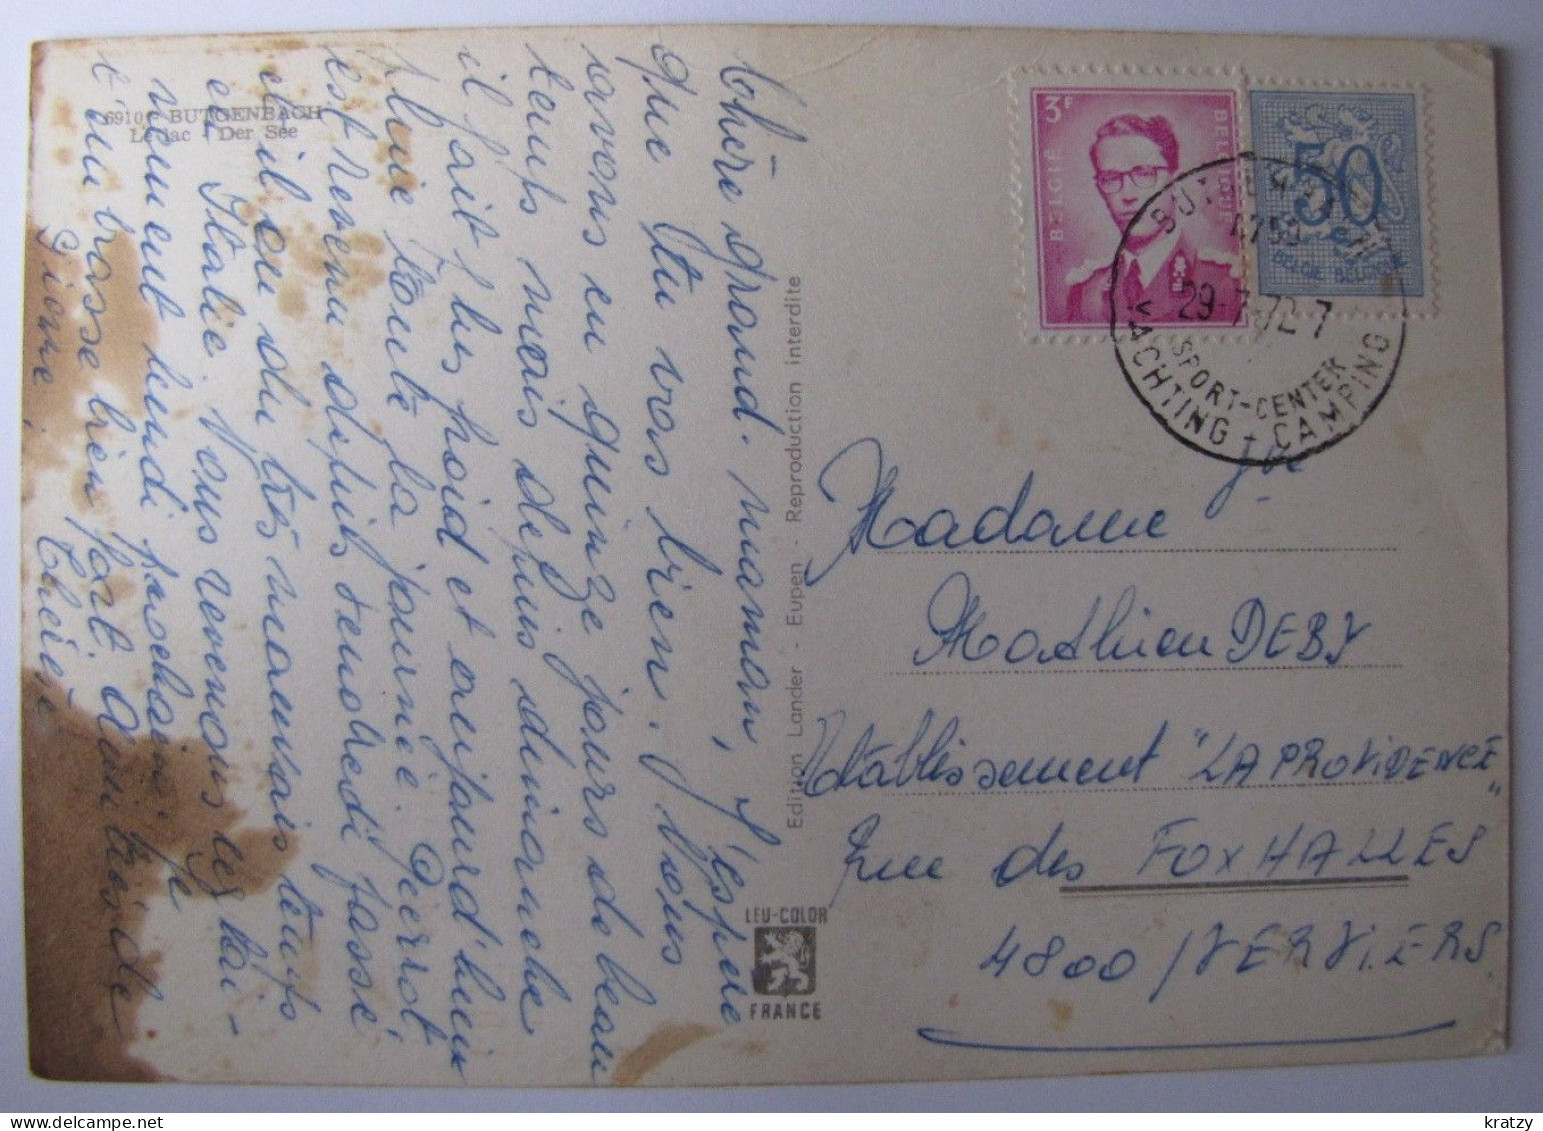 6910 BUTGENBACH
Le lac - Der See
Chère grand-maman, J'espère
que tu vas bien. Nous
avons eu quinze jours de beau
temps mais depuis dimanche
il fait plus froid et aujourd'hui
pluie toute la journée. Pierrot
est revenu depuis vendredi passé
il a eu du très mauvais temps
en Italie. Nous revenons les
lundi prochain. Je
t'embrasse bien fort.
Thérèse
Edition Lander - Eupen - Reproduction interdite
LEU-COLOR
FRANCE
3F
BELGIË BELGIQUE
50
BELGIE BELGIQUE
29-7-72-7
SPORT-CENTER
YACHTING + CAMPING
Madame
Mathieu DEBY
Etablissement "LA PROVIDENCE"
Rue des FOXHALLES
4800 / VERVIERS
kratzy